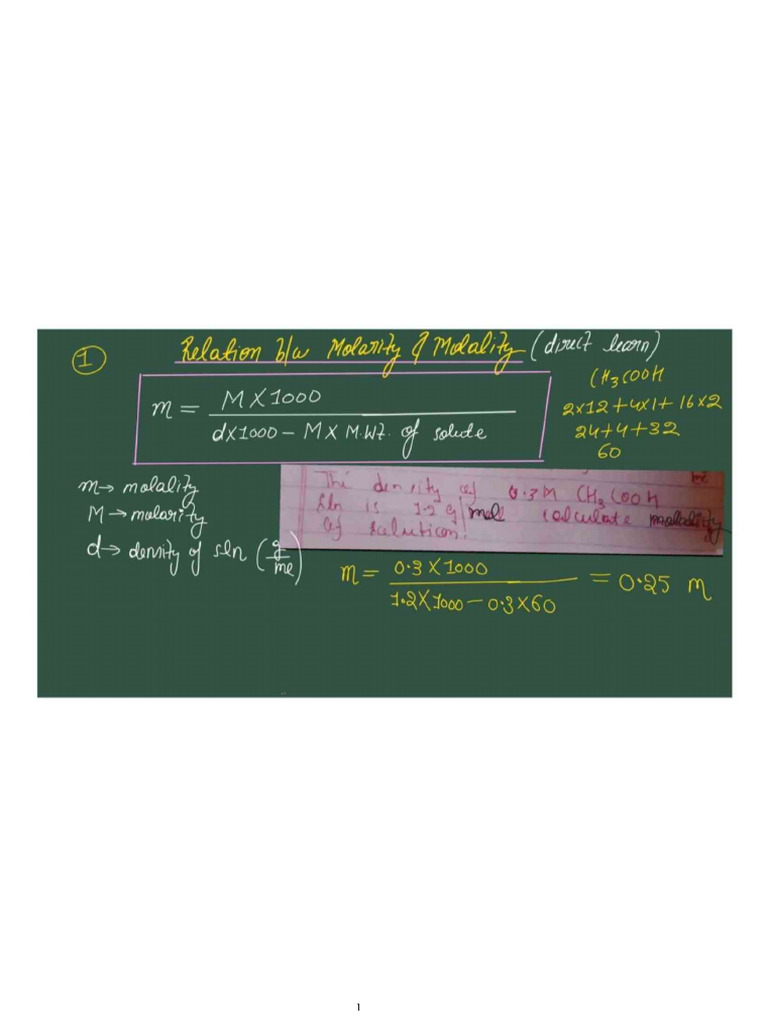 1
Relation b/w Molarity & Molality (direct learn)
m = M X 1000 / dx1000 - M x M.Wt. of solute
CH3COOH
2x12 + 4x1 + 16x2
24+4+32
60
m → molality
M → molarity
d → density of sln (g/ml)
The density of 0.3M CH3COOH
sln is 1.2 g/ml calculate molality
of solution.
m = 0.3 X 1000 / 1.2X1000 - 0.3X60 = 0.25 m
1